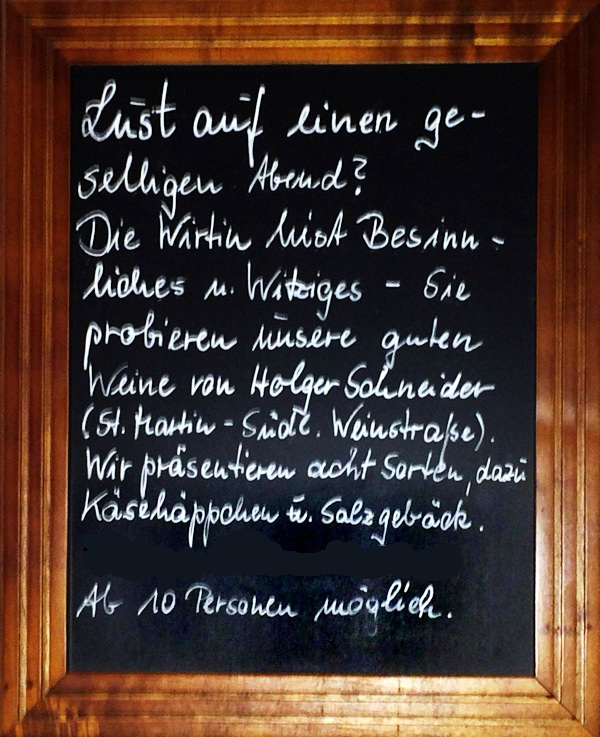 Lust auf einen ge-
selligen Abend?
Die Wirtin liest Besinn-
liches u. Witziges - Sie
probieren unsere guten
Weine von Holger Schneider
(St. Martin - Südl. Weinstraße).
Wir präsentieren acht Sorten, dazu
Käsehäppchen u. Salzgebäck.
Ab 10 Personen möglich.